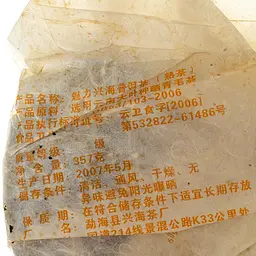 产品名称：强力兴海普洱茶（熟茶）
产品原料：选用云南大叶种晒青毛茶
产品执行标准号 103-2006
食品卫 云卫食字[2006]
第532822-61486号
质量等级 级
净含量：357克
生产日期：2007年5月
储存条件：清洁、通风、干燥、无
异味避免阳光曝晒
保质期：在符合储存条件下适宜长期存放
厂名：勐海县兴海茶厂
国道214线景混公路K33公里处